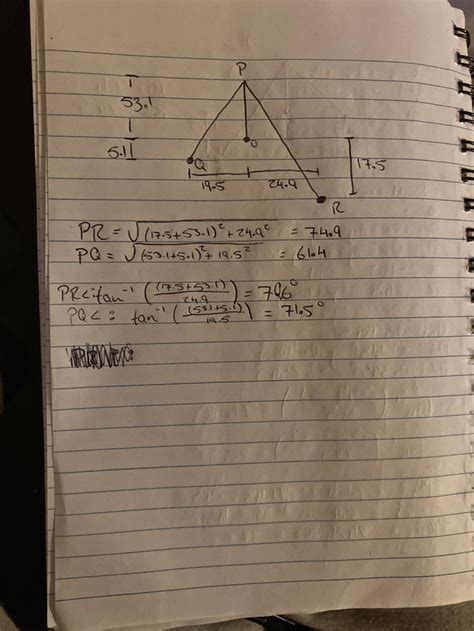 P
53.1
5.1
Q
O
19.5
24.9
17.5
R
PR = √(17.5+53.1)² + 24.9² = 74.9
PQ = √(53.1+5.1)² + 19.5² = 61.4
PR<: tan⁻¹ ((17.5+53.1)/24.9) = 70.6°
PQ<: tan⁻¹ ((53.1+5.1)/19.5) = 71.5°